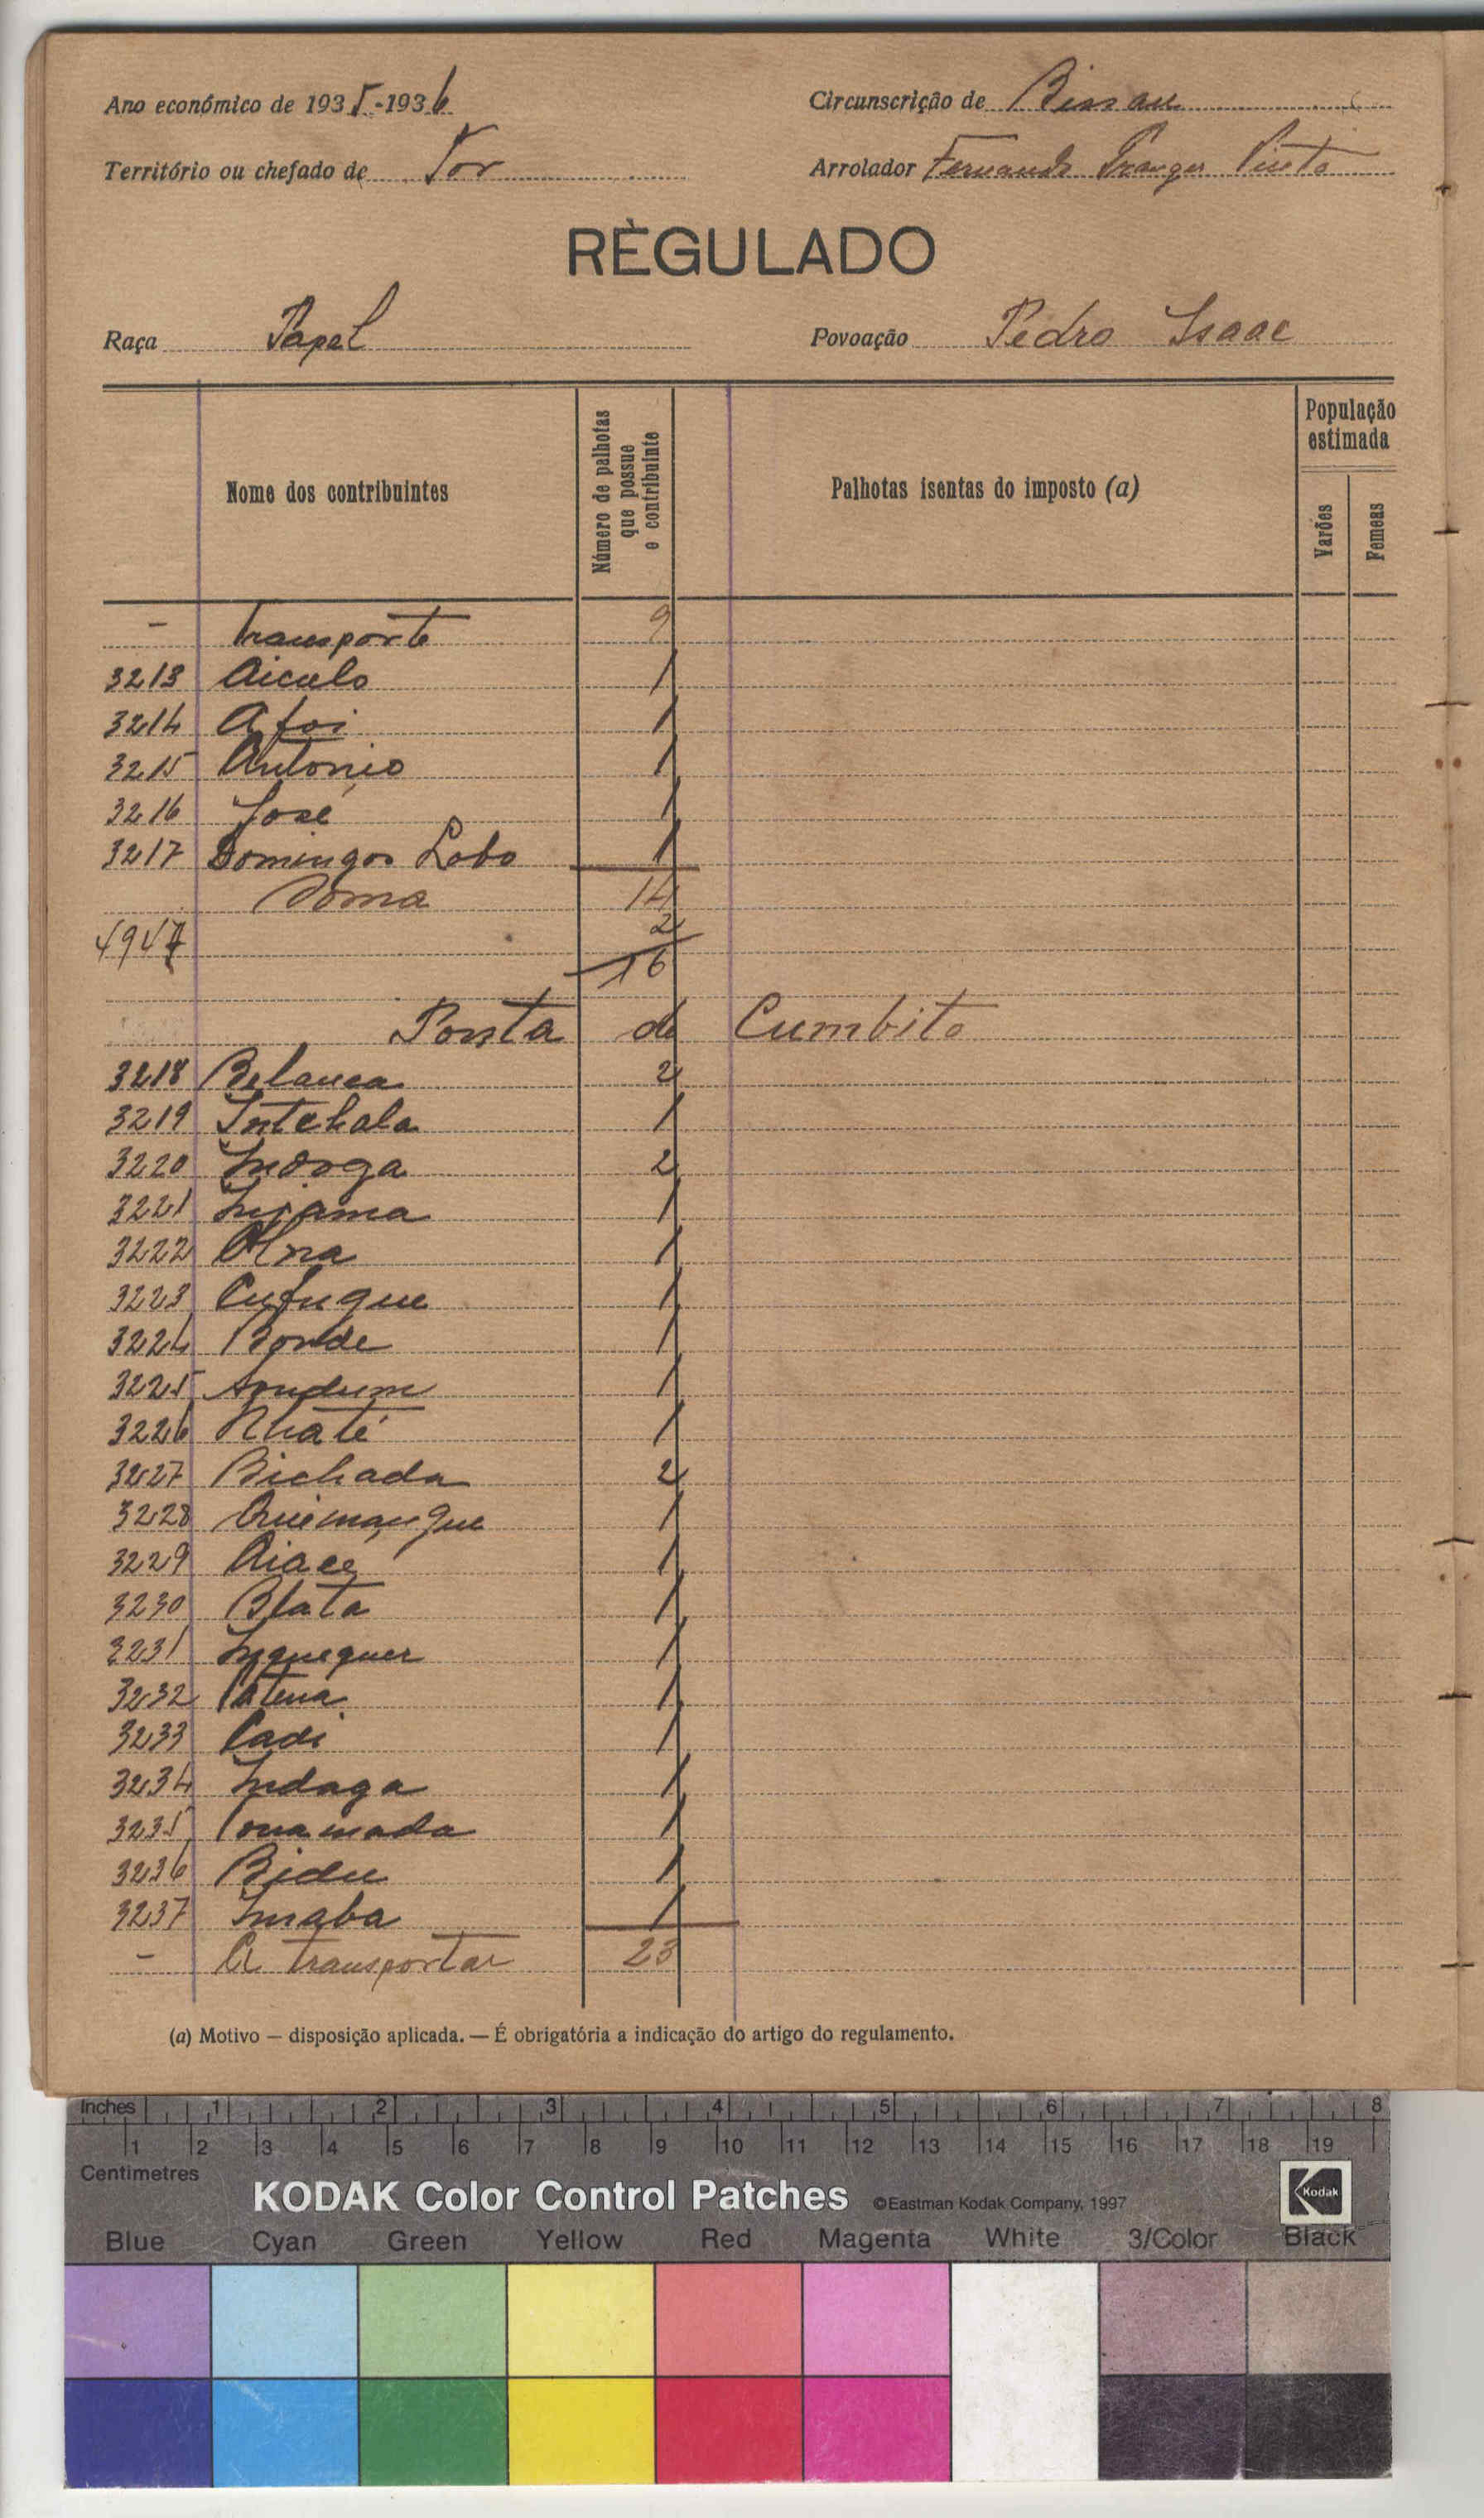 Ano económico de 1935-1936
Circunscrição de Bissau
Território ou chefado de Tor
Arrolador Fernando Pinto
RÈGULADO
Raça Papel
Povoação Pedro Isaac
Nome dos contribuintes
Número de palhotas que possue o contribuinte
Palhotas isentas do imposto (a)
População estimada
Varões
Femeas
- Transporte 9
3213 Aiculo 1
3214 Afoi 1
3215 Antonio 1
3216 José 1
3217 Domingos Lobo 1
Soma 14
2
16
Ponta de Cumbito
3218 Belanca 2
3219 Intchala 1
3220 Indorga 2
3221 Injama 1
3222 1
3223 Cufuque 1
3224 Bonde 1
3225 1
3226 Nhaté 1
3227 Bichada 2
3228 1
3229 1
3230 Blata 1
3231 Inquequer 1
3232 1
3233 Cadi 1
3234 Indaga 1
3235 1
3236 Bidu 1
3237 Imaba 1
- A transportar 23
(a) Motivo — disposição aplicada. — É obrigatória a indicação do artigo do regulamento.
Inches 1 2 3 4 5 6 7 8
1 2 3 4 5 6 7 8 9 10 11 12 13 14 15 16 17 18 19
Centimetres
KODAK Color Control Patches ©Eastman Kodak Company, 1997 Kodak
Blue Cyan Green Yellow Red Magenta White 3/Color Black